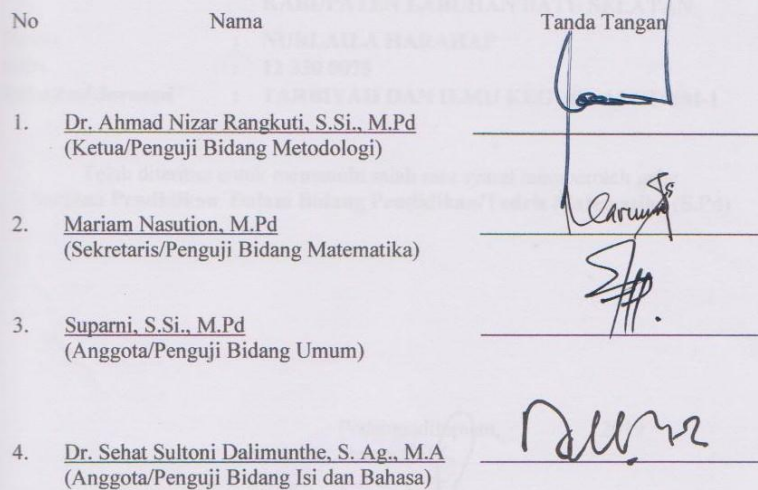 No Nama Tanda Tangan
1. Dr. Ahmad Nizar Rangkuti, S.Si., M.Pd
(Ketua/Penguji Bidang Metodologi)
2. Mariam Nasution, M.Pd
(Sekretaris/Penguji Bidang Matematika)
3. Suparni, S.Si., M.Pd
(Anggota/Penguji Bidang Umum)
4. Dr. Sehat Sultoni Dalimunthe, S. Ag., M.A
(Anggota/Penguji Bidang Isi dan Bahasa)